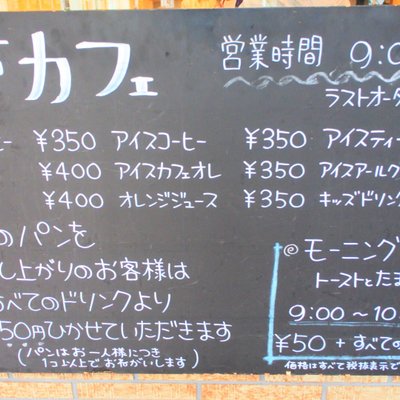 カフェ
営業時間 9:0
ラストオーダ
ー ¥350 アイスコーヒー ¥350 アイスティー
¥400 アイスカフェオレ ¥350 アイスアールグ
¥400 オレンジジュース ¥350 キッズドリン
のパンを
し上がりのお客様は
べてのドリンクより
50円ひかせていただきます
(パンはお一人様につき
1コ以上でおねがいします)
@モーニング
トーストとたま
9:00~10
¥50+すべての
価格はすべて税抜表示で